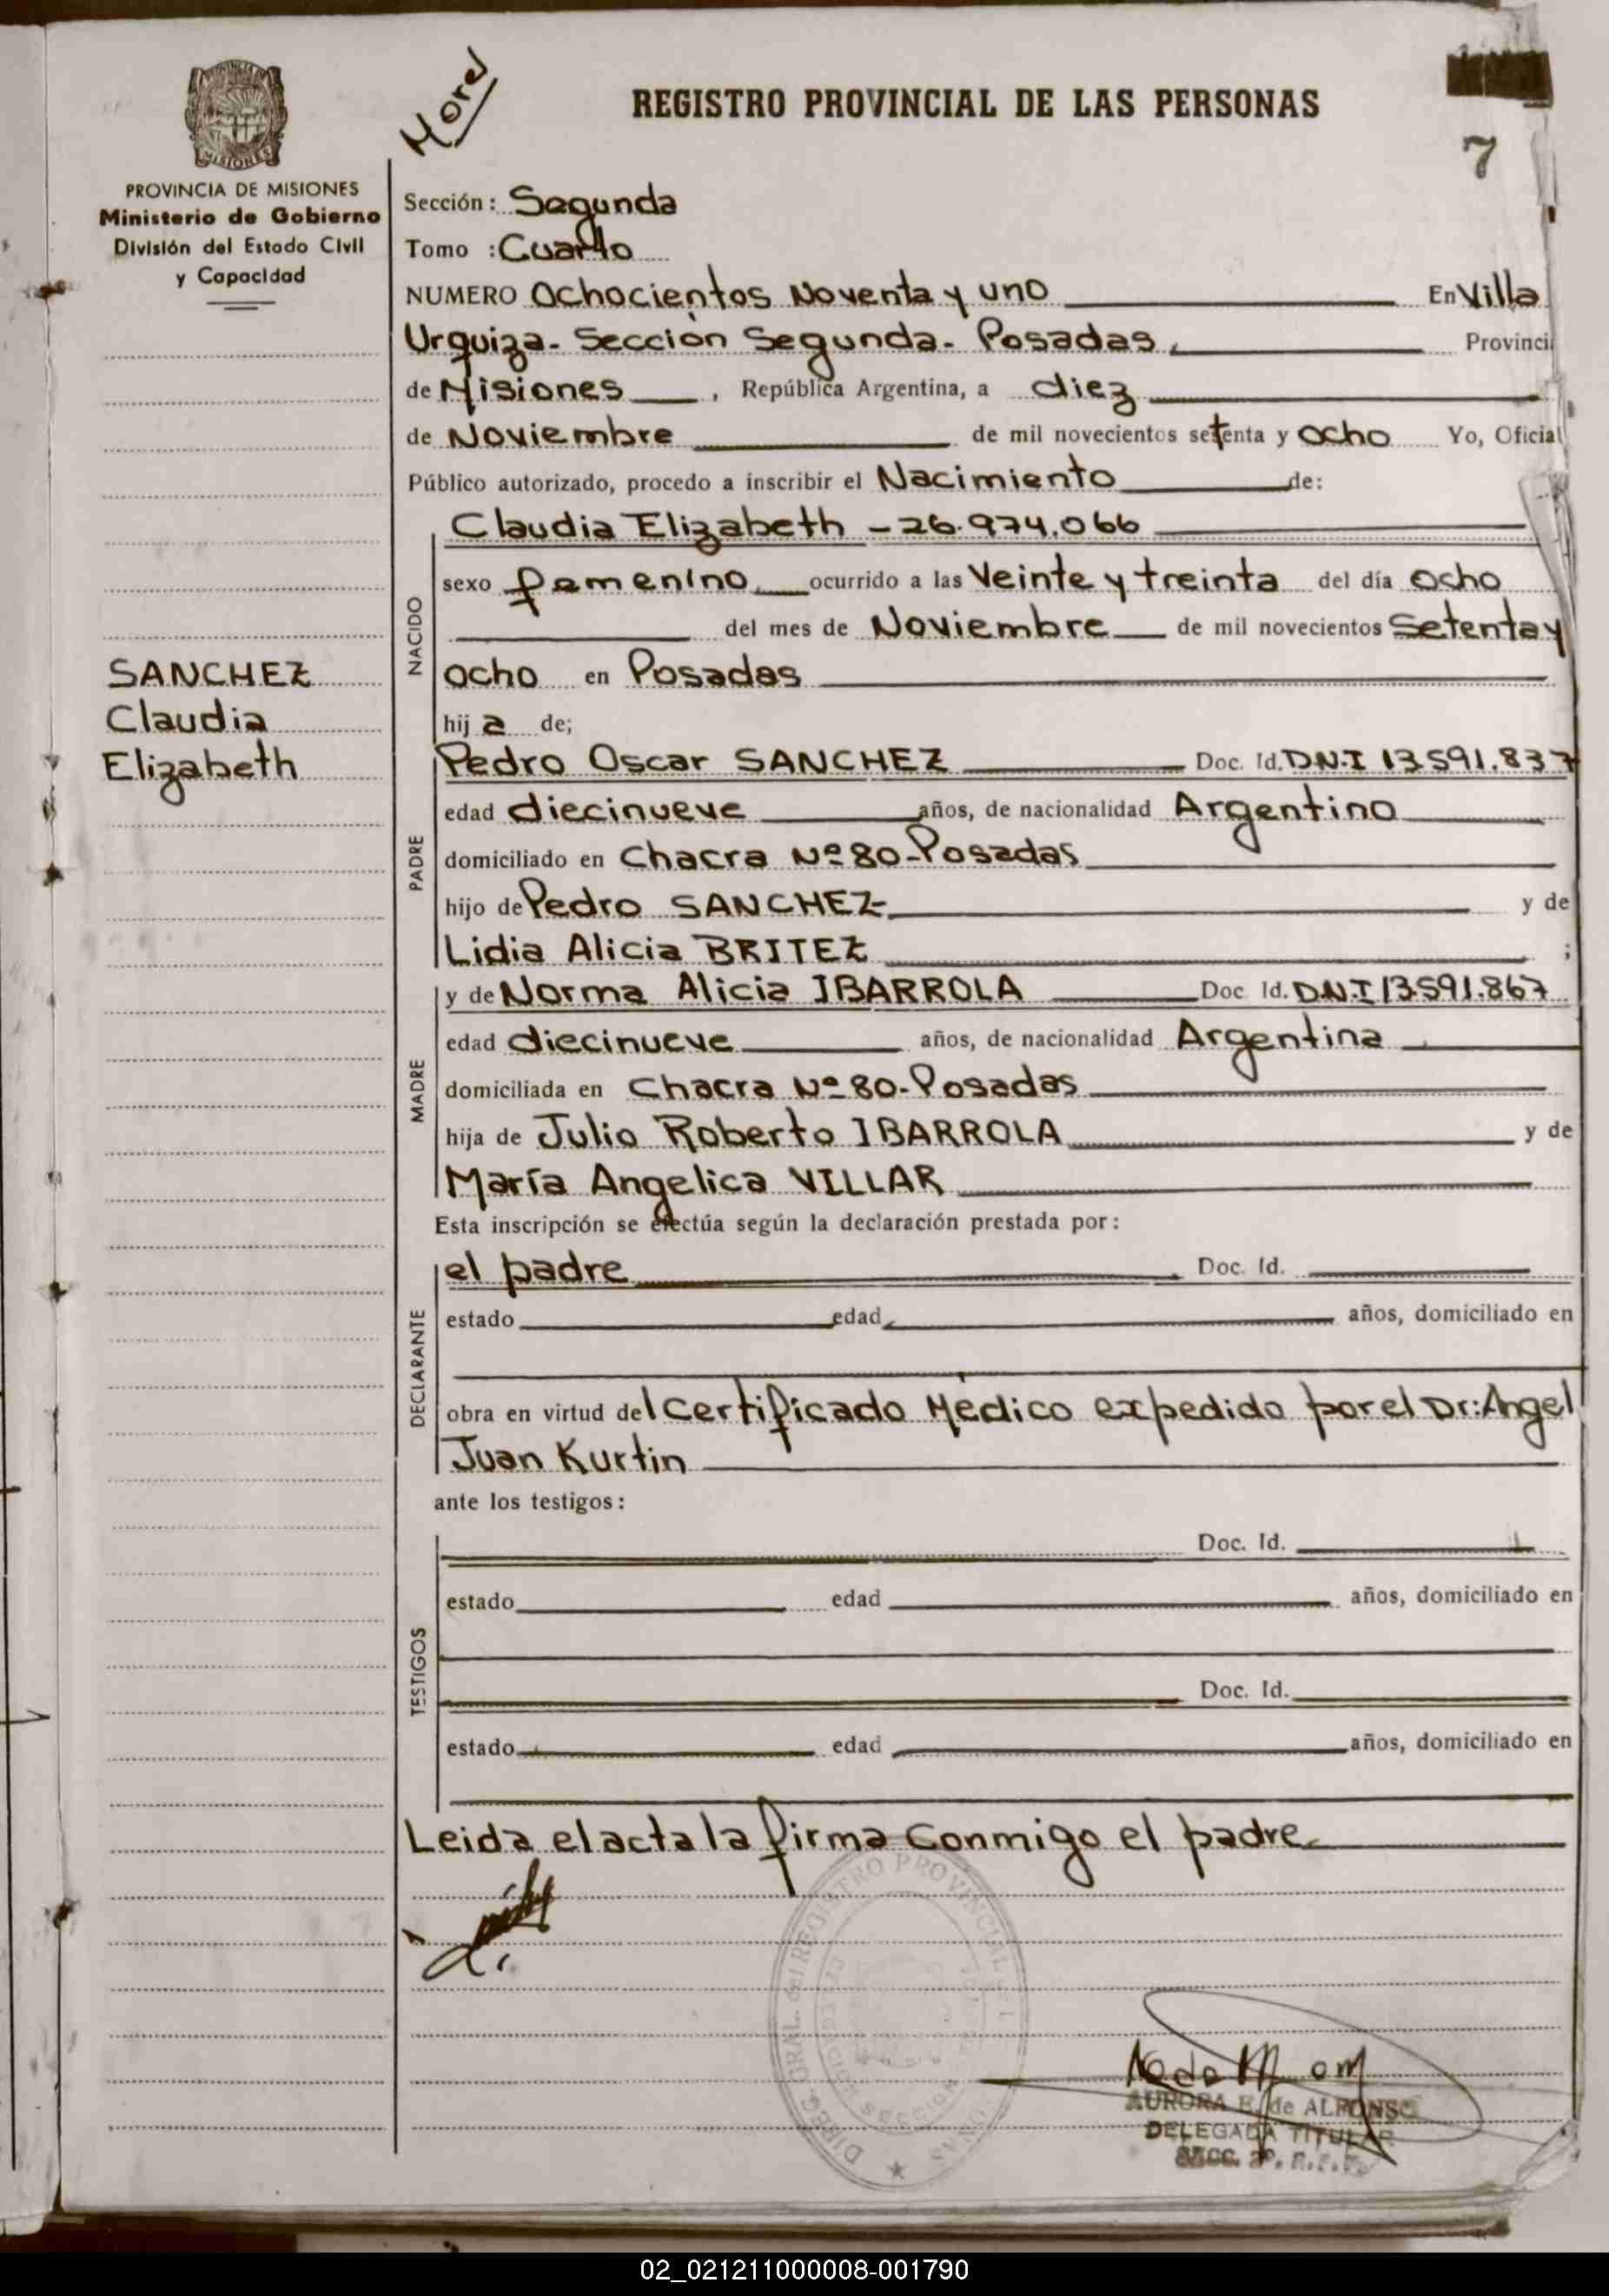 Morel
REGISTRO PROVINCIAL DE LAS PERSONAS
7
MISIONES
PROVINCIA DE MISIONES
Ministerio de Gobierno
División del Estado Civil
y Capacidad
Sección: Segunda
Tomo : Cuarto
NUMERO Ochocientos Noventa y uno En Villa
Urquiza - Sección Segunda - Posadas, Provinci
de Misiones, República Argentina, a diez
de Noviembre de mil novecientos setenta y ocho Yo, Oficial
Público autorizado, procedo a inscribir el Nacimiento de:
NACIDO
Claudia Elizabeth - 26.974.066
sexo femenino, ocurrido a las Veinte y treinta del día ocho
del mes de Noviembre de mil novecientos Setenta y
ocho en Posadas
hij a de;
SANCHEZ
Claudia
Elizabeth
PADRE
Pedro Oscar SANCHEZ Doc. Id. D.N.I 13.591.837
edad diecinueve años, de nacionalidad Argentino
domiciliado en Chacra Nº 80 - Posadas
hijo de Pedro SANCHEZ y de
Lidia Alicia BRITEZ ;
MADRE
y de Norma Alicia IBARROLA Doc Id. D.N.I 13.591.867
edad diecinueve años, de nacionalidad Argentina
domiciliada en Chacra Nº 80 - Posadas
hija de Julio Roberto IBARROLA y de
María Angelica VILLAR
Esta inscripción se efectúa según la declaración prestada por:
DECLARANTE
el padre Doc. Id.
estado edad años, domiciliado en
obra en virtud del Certificado Médico expedido por el Dr: Angel
Juan Kurtin
ante los testigos:
TESTIGOS
Doc. Id.
estado edad años, domiciliado en
Doc. Id.
estado edad años, domiciliado en
Leida el acta la firma conmigo el padre
DIREC. GRAL. del REGISTRO PROVINCIAL
SECCION
AURORA de ALFONSO
DELEGADA TITULAR
SECC. 2ª
02_021211000008-001790